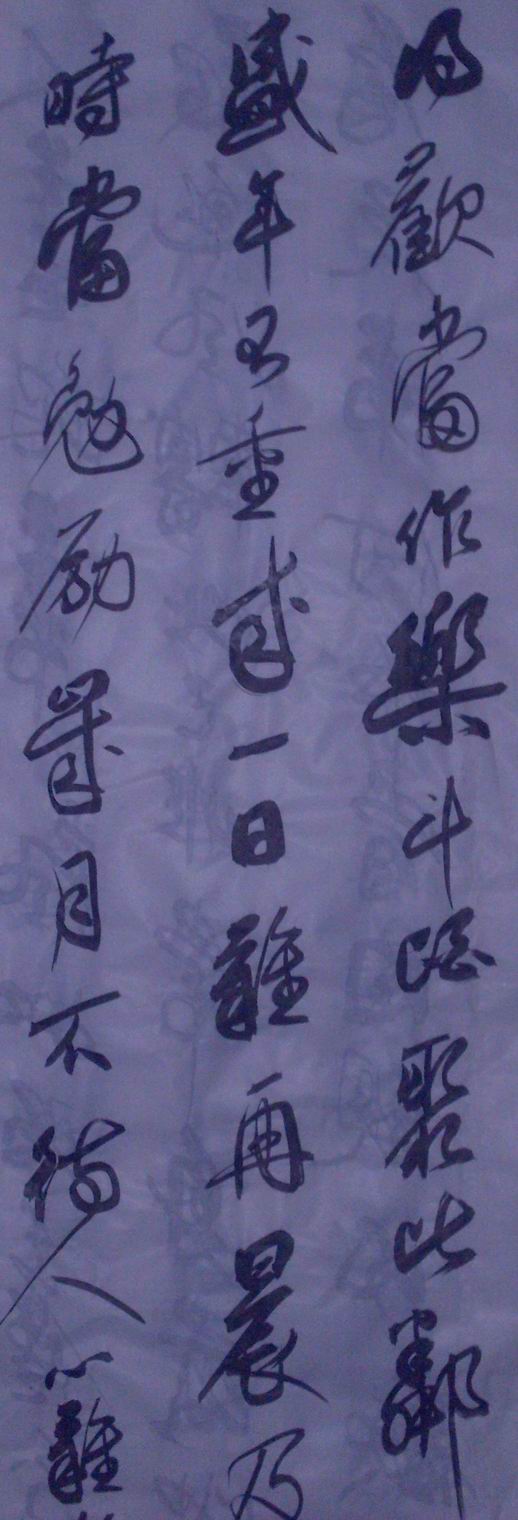 得歡當作樂斗聚比鄰
盛年不重一日難再晨及
時當勉勵歲月不待人難